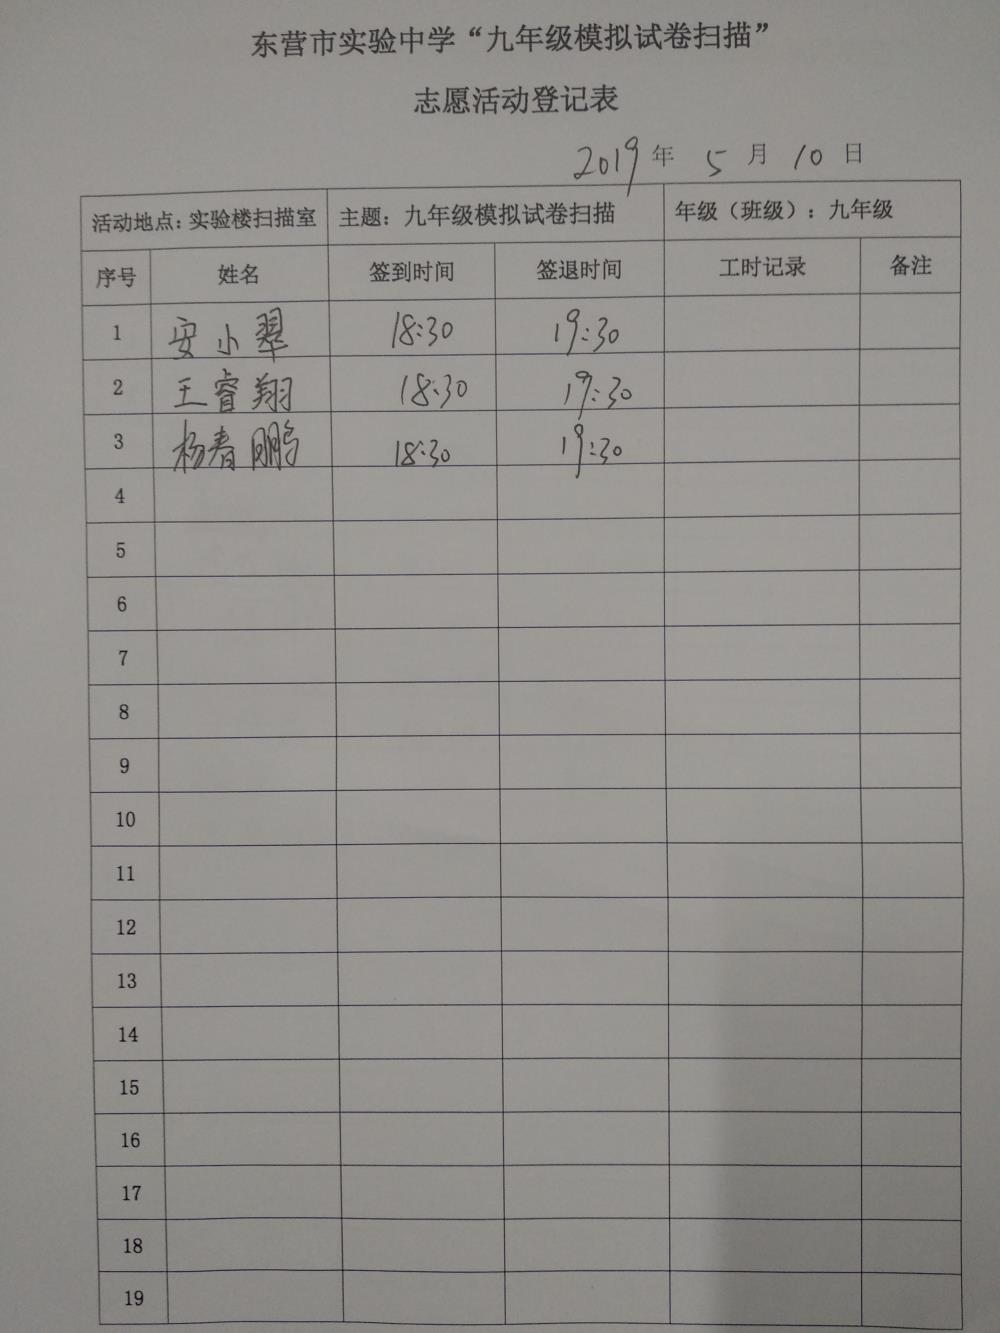 东营市实验中学“九年级模拟试卷扫描”
志愿活动登记表
2019 年 5 月 10 日
活动地点：实验楼扫描室 主题：九年级模拟试卷扫描 年级（班级）：九年级
序号 姓名 签到时间 签退时间 工时记录 备注
1 安小翠 18:30 19:30
2 王睿翔 18:30 19:30
3 杨春鹏 18:30 19:30
4
5
6
7
8
9
10
11
12
13
14
15
16
17
18
19